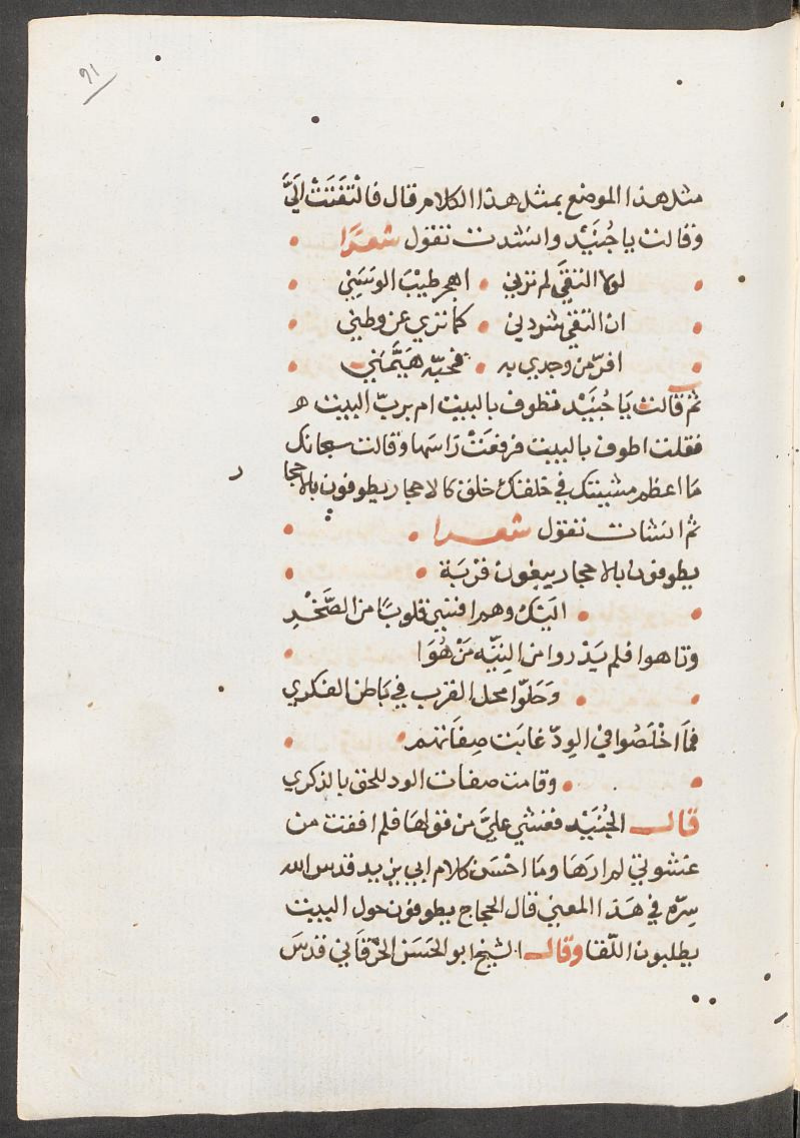 91
مثل هذا الموضع بمثل هذا الكلام قال فالتَفَتَتْ اِلَيَّ
وقالت يا جُنَيْد وانشدت تقول شعرًا
لولا التقيَ لم تزني اهجر طيْبَ الوسَنِي
ان التقي شردني كما تري عن وطني
افرّ من وجدي به فحبّه هَيَّمَني
ثم قالت يَا جُنَيْد فتطوف بالبيت ام بربّ البيت ه
فقلت اطوف بالبيت فرفعَتْ رَاسَها وقالت سبحانك
مَا اعظم مشيئتك في خلقك خلق كالاحجار يطوفون بالاحجا
ر
ثم انشات تقول شعرا
يطوفون بالاحجار يبغون قربَة
اليْك وهم اقسي قلوبًا من الصَّخْرِ
وتاهوا فلم يَدْروا من التِيْه مَنْ هُوَا
وَحَلّوا محل القرب في بَاطن الفكري
فلمَا اخْلَصُوا في الودّ غابَت صِفَاتهم
وقامت صفات الود للحق بالذكري
قال الجُنَيْد فغشي عليَّ من قولهَا فلم افقت من
غشوتي لم ارهَا ومَا احْسَن كلام ابي يزيد قدس الله
سِرّه في هَذا المعني قال الحجاج يطوفون حول البيت
يطلبون اللّقا وقال الشيخ ابو الحَسَن الخَرْقَاني قدسَ